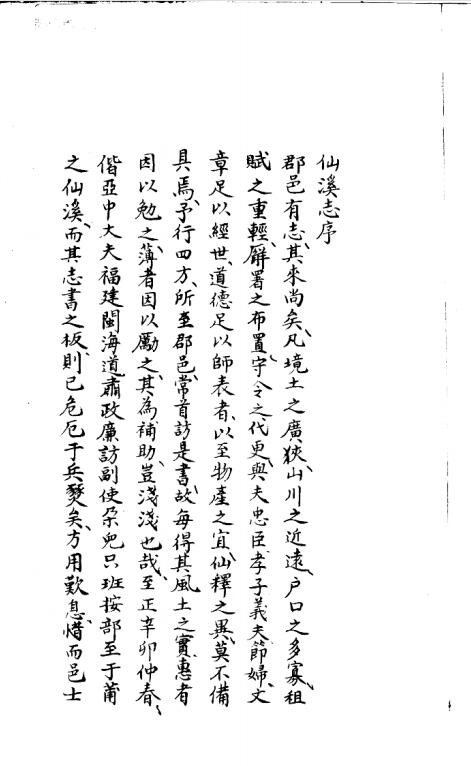 仙溪志序
郡邑有志、其來尚矣、凡境土之廣狹、山川之近遠、户口之多寡、租
賦之重輕、廨署之布置、守令之代更、與夫忠臣孝子義夫節婦、文
章足以經世、道德足以師表者、以至物產之宜、仙釋之異、莫不備
具焉、予行四方、所至郡邑、常首訪是書、故每得其風土之實、惠者
因以勉之、薄者因以勵之、其為補助、豈淺淺也哉、至正辛卯仲春、
偕亞中大夫福建閩海道肅政廉訪副使朶兒只班按部至于莆
之仙溪、而其志書之板、則已危厄于兵燹矣、方用歎息、惜而邑士